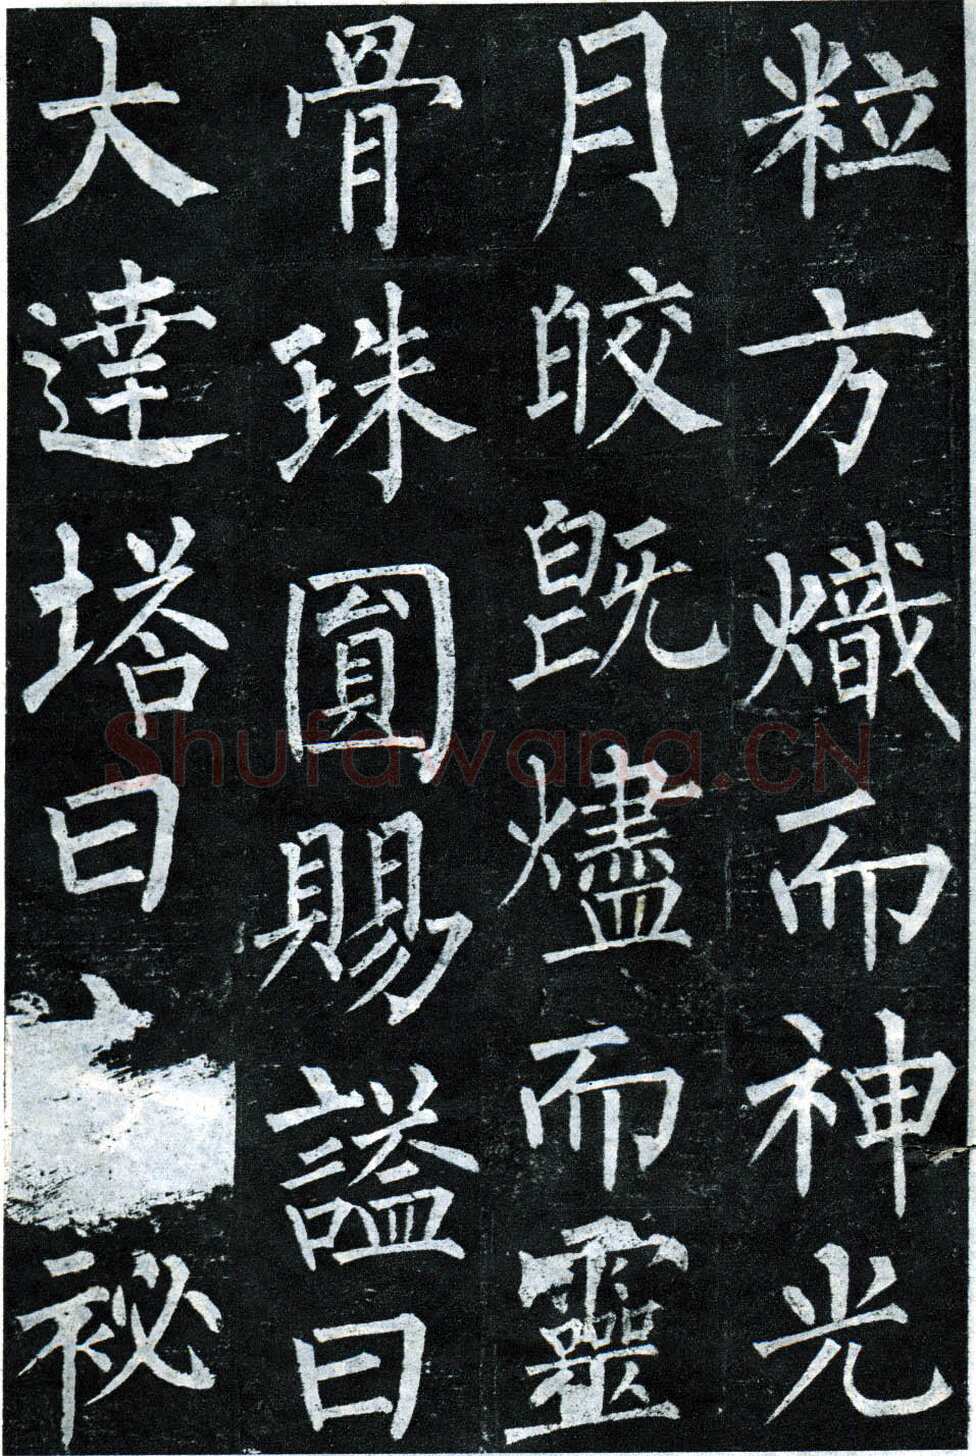 粒方熾而神光
月皎既燼而靈
骨珠圓賜謚曰
大達塔曰
祕
Shufawang.CN